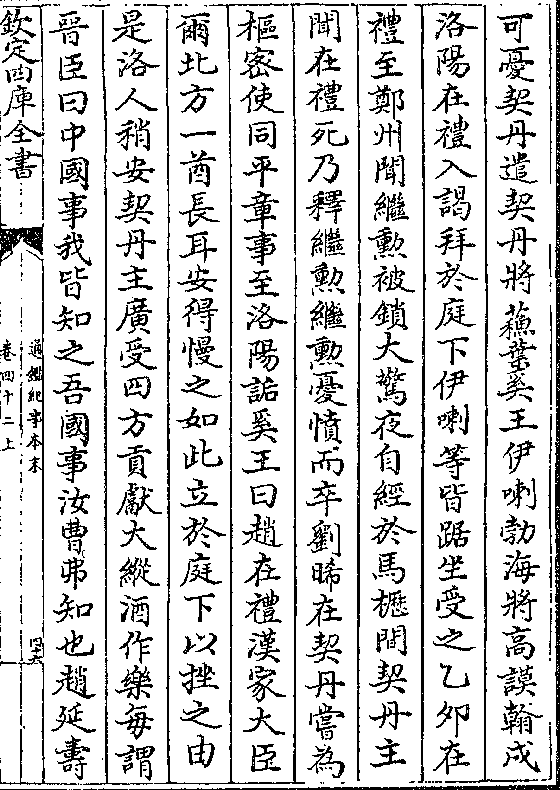 可憂契丹遣契丹將蘓葉奚王伊喇勃海將高謨翰戍
洛陽在禮入謁拜於庭下伊喇等皆踞坐受之乙夘在
禮至鄭州聞繼勲被鎖大驚夜自經於馬櫪間契丹主
聞在禮死乃釋繼勲繼勲憂憤而卒劉晞在契丹嘗為
樞宻使同平章事至洛陽詬奚王曰趙在禮漢家大臣
爾北方一酋長耳安得慢之如此立於庭下以挫之由
是洛人稍安契丹主廣受四方貢獻大縱酒作樂每謂
晉臣曰中國事我皆知之吾國事汝曹弗知也趙延壽
欽定四庫全書
通鑑紀事本末
卷四十二上
四十六